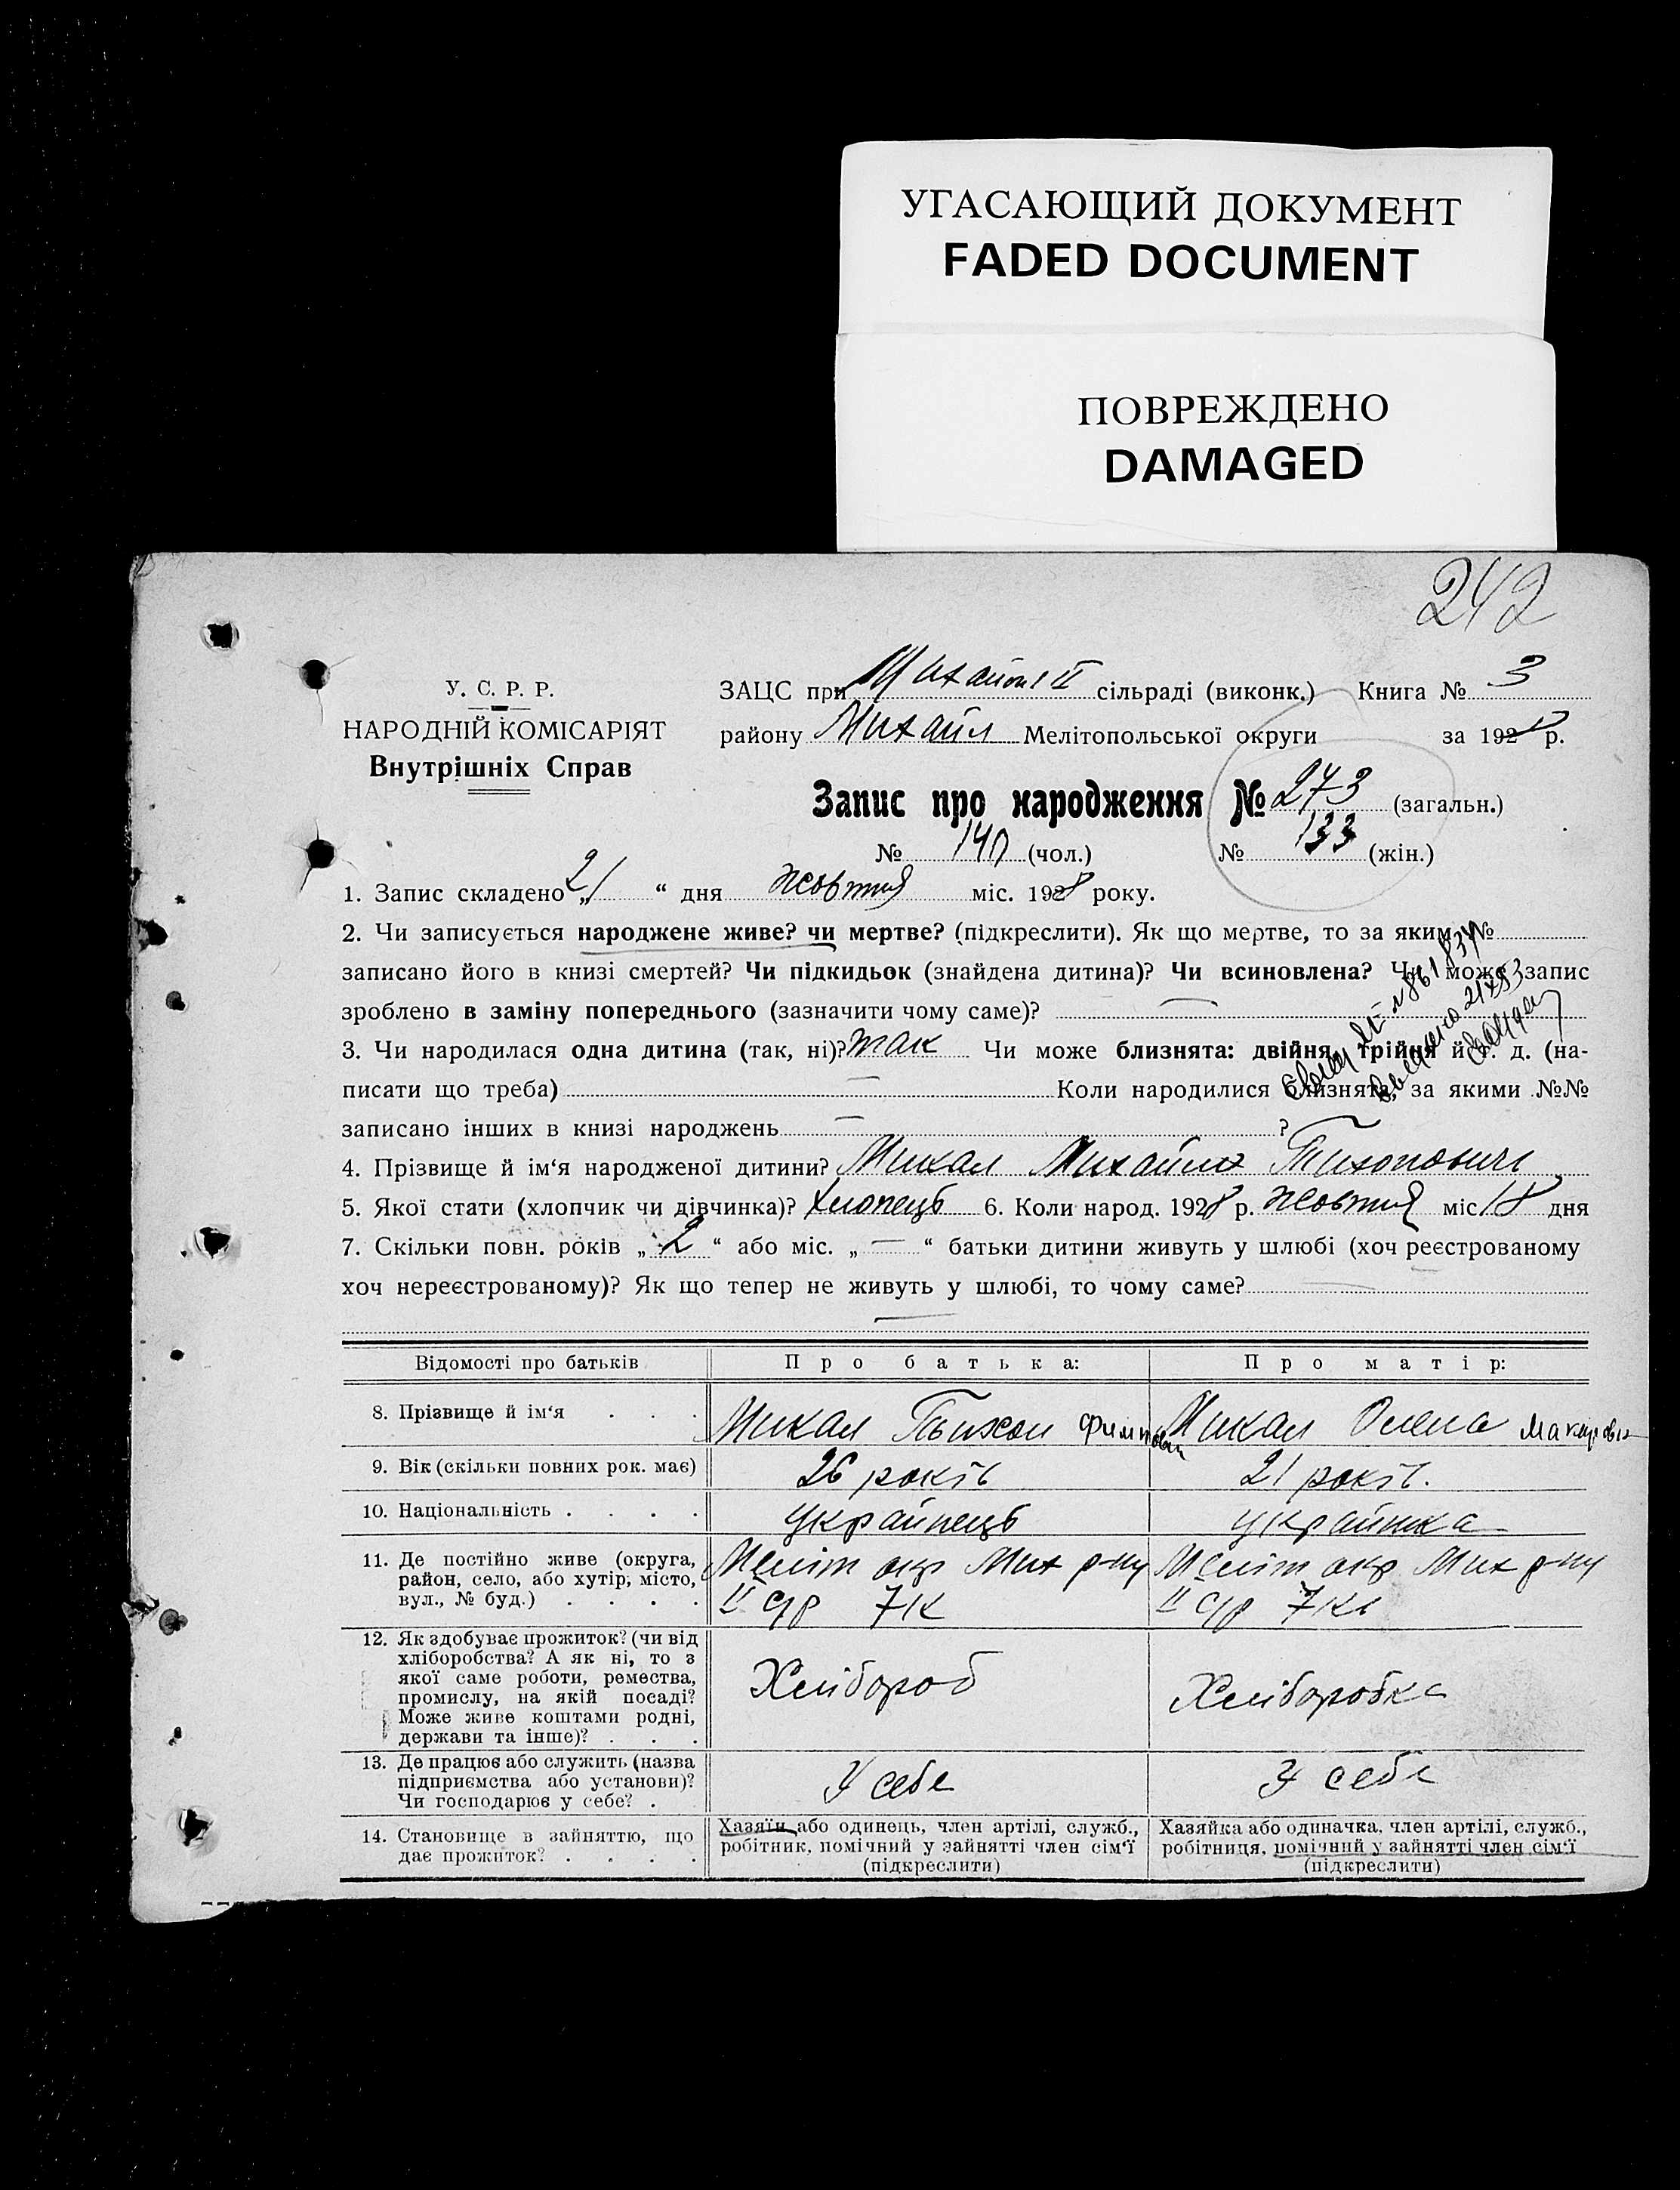 УГАСАЮЩИЙ ДОКУМЕНТ
FADED DOCUMENT
ПОВРЕЖДЕНО
DAMAGED
242
У. С. Р. Р.
НАРОДНІЙ КОМІСАРІЯТ
Внутрішніх Справ
ЗАЦС при II сільраді (виконк.) Книга № 3
району Михайл Мелітопольської округи за 1928 р.
Запис про народження № 273 (загальн.)
№ 140 (чол.) № 133 (жін.)
1. Запис складено „21“ дня жовтня міс. 1928 року.
2. Чи записується народжене живе? чи мертве? (підкреслити). Як що мертве, то за яким №
записано його в книзі смертей? Чи підкидьок (знайдена дитина)? Чи всиновлена? Чи може запис
зроблено в заміну попереднього (зазначити чому саме)? —
3. Чи народилася одна дитина (так, ні)? так Чи може близнята: двійня, трійня й т. д. (на-
писати що треба) — Коли народилися близнята, за якими №№
записано інших в книзі народжень — ?
4. Прізвище й ім‘я народженої дитини? Микал Михайло Тихонович
5. Якої стати (хлопчик чи дівчинка)? хлопець 6. Коли народ. 1928 р. жовтня міс 18 дня
7. Скільки повн. років „2“ або міс. „—“ батьки дитини живуть у шлюбі (хоч реєстрованому
хоч нереєстрованому)? Як що тепер не живуть у шлюбі, то чому саме? —
—
Відомості про батьків Про батька: Про матір:
8. Прізвище й ім‘я . . . Микал Тихон Микал Олена
9. Вік (скільки повних рок. має) 26 років 21 років.
10. Національність . . . . Українець Українка
11. Де постійно живе (округа, Меліт окр Мих р-ну Меліт окр Мих р-ну
район, село, або хутір, місто,
вул., № буд.) . . . . II с/р 7К II с/р
12. Як здобуває прожиток? (чи від
хліборобства? А як ні, то з
якої саме роботи, ремества, Хлібороб Хліборобка
промислу, на якій посаді?
Може живе коштами родні,
держави та інше)? . . .
13. Де працює або служить (назва
підприємства або установи)? У себе У себе
Чи господарює у себе? .
14. Становище в зайняттю, що
дає прожиток? . . . .
Хазяїн або одинець, член артілі, служб.,
робітник, помічний у зайнятті член сім‘ї
(підкреслити)
Хазяйка або одиначка, член артілі, служб.,
робітниця, помічний у зайнятті член сім‘ї
(підкреслити)